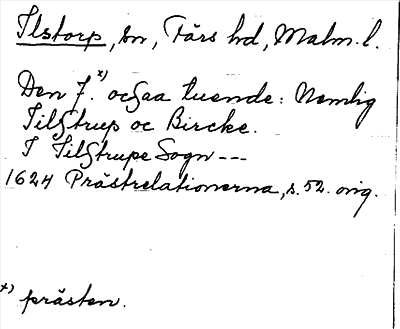 Ilstorp, sn, Färs hd, Malm. l.
Den 7.ˣ⁾ ocsaa tuende: Nemlig
Tilstrup oc Bircke.
I Tilstrupe Sogn ---
1624 Prästrelationerna, s. 52. orig.
x) prästen.